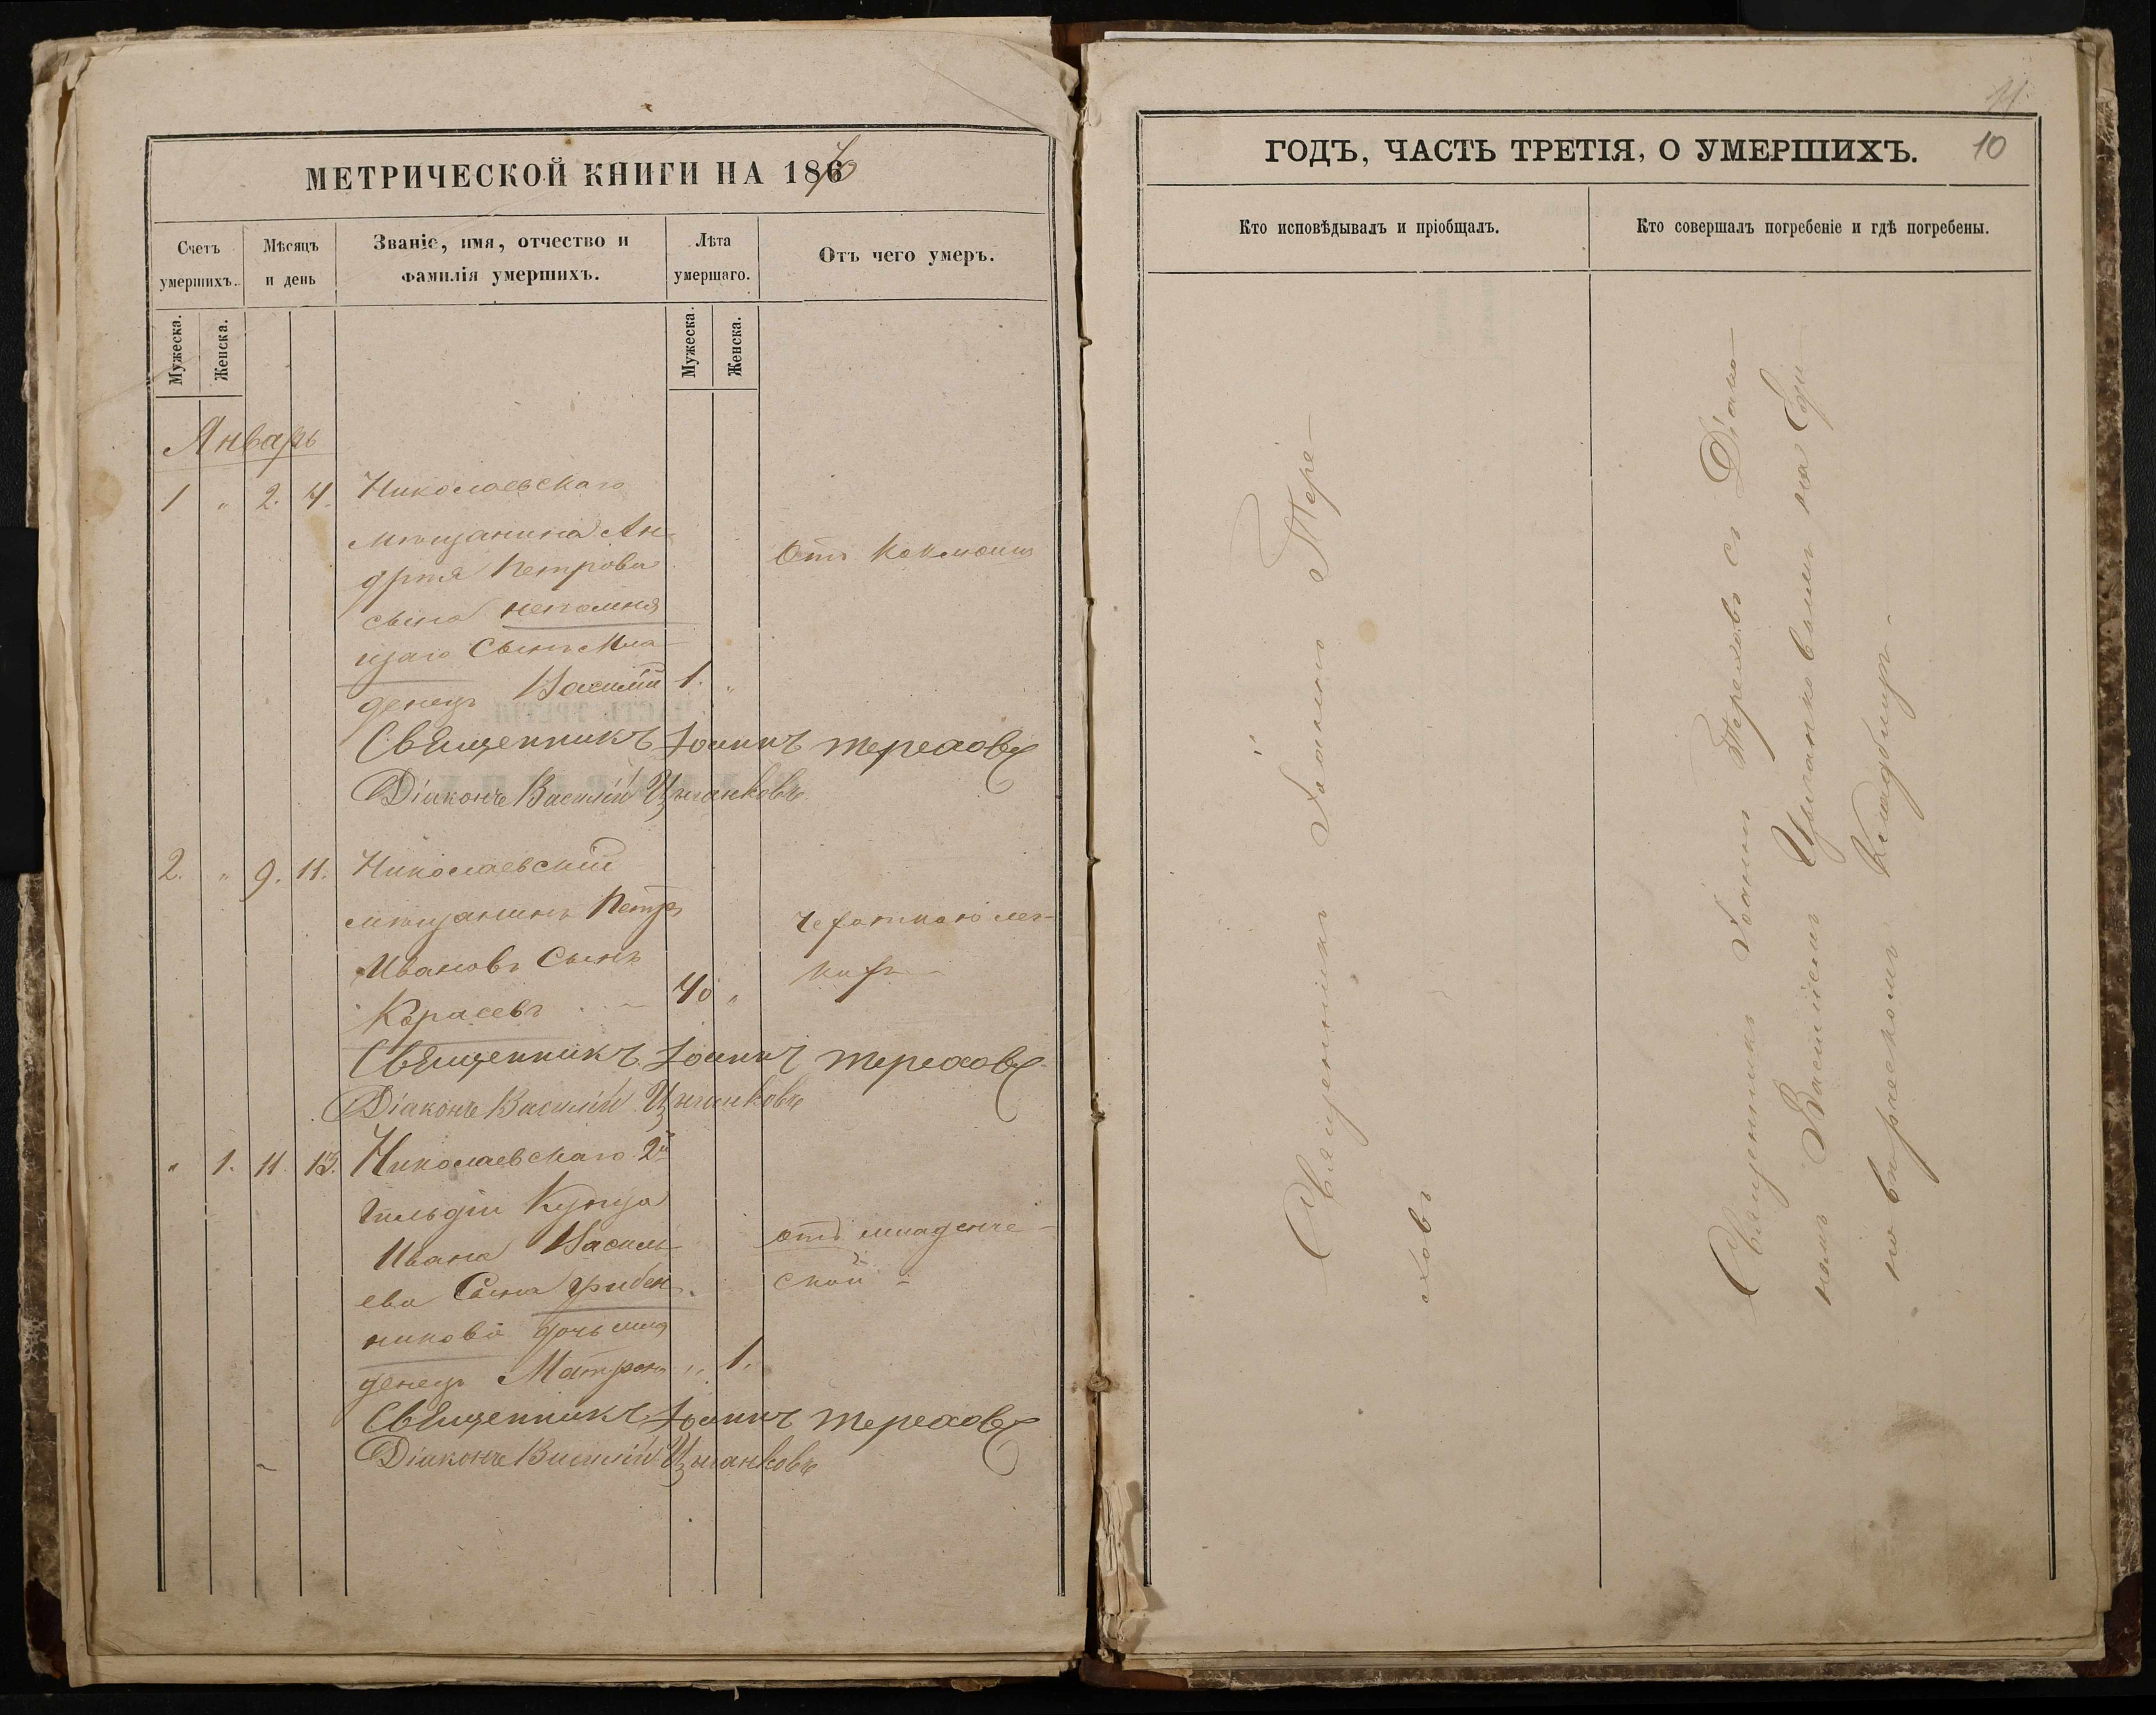 МЕТРИЧЕСКОЙ КНИГИ НА 1870
Счетъ умершихъ.
Мѣсяцъ и день
Званіе, имя, отчество и фамилія умершихъ.
Лѣта умершаго.
Отъ чего умеръ.
Мужеска.
Женска.
Мужеска.
Женска.
Январь
1 „ 2. 4. Николаевскаго
мѣщанина Ан-
дрея Петрова
сына непомня
щаго сынъ мла-
денецъ Василій 1. „
Отъ
Священникъ Іоаннъ Тереховъ
Діаконъ Василій Цыганковъ
2. „ 9. 11. Николаевскій
мѣщанинъ Петръ
Ивановъ Сынъ
Карасевъ 40 „
Священникъ Іоаннъ Тереховъ
Діаконъ Василій Цыганковъ
„ 1. 11. 13. Николаевскаго 2й
гильдіи Купца
Ивана Василь-
ева Сына Гребен-
никова дочь мла
денецъ Матрона „ 1.
отъ младенче-
ской
Священникъ Іоаннъ Тереховъ
Діаконъ Василій Цыганковъ
11
10
ГОДЪ, ЧАСТЬ ТРЕТІЯ, О УМЕРШИХЪ.
Кто исповѣдывалъ и пріобщалъ.
Кто совершалъ погребеніе и гдѣ погребены.
Священникъ Іоаннъ Тере-
ховъ
Священникъ Іоаннъ Тереховъ съ Діако-
номъ Василіемъ Цыганковымъ на Еди-
новѣрческомъ Кладбищѣ.